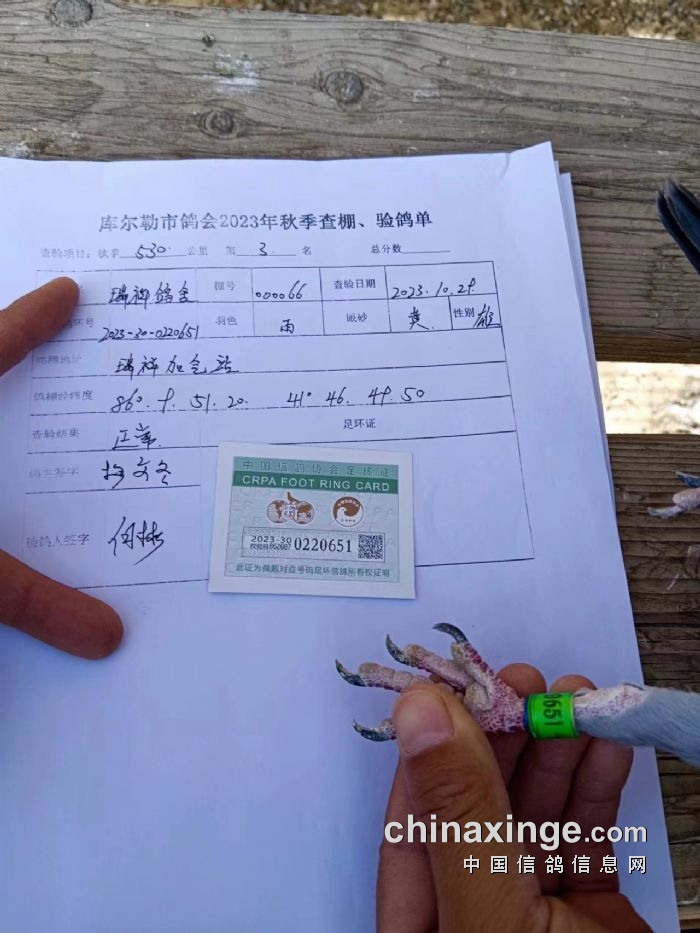 库尔勒市鸽会2023年秋季查棚、验鸽单
查验项目：秋季 530 公里 第 3 名 总分数
瑞祥鸽舍 棚号 000066 查验日期 2023.10.29
环号 2023-30-0220651 羽色 雨 眼砂 黄 性别 雄
鸽棚地址 瑞祥加气站
鸽棚经纬度 86°.9.51.20. 41° 46. 49. 50
查验结果 正常. 足环证
鸽主签字
验鸽人签字
中国信鸽协会足环证
CRPA FOOT RING CARD
2023-30 0220651
此证为佩戴对应号码足环信鸽所有权证明
0651
chinaxinge.com
中国信鸽信息网